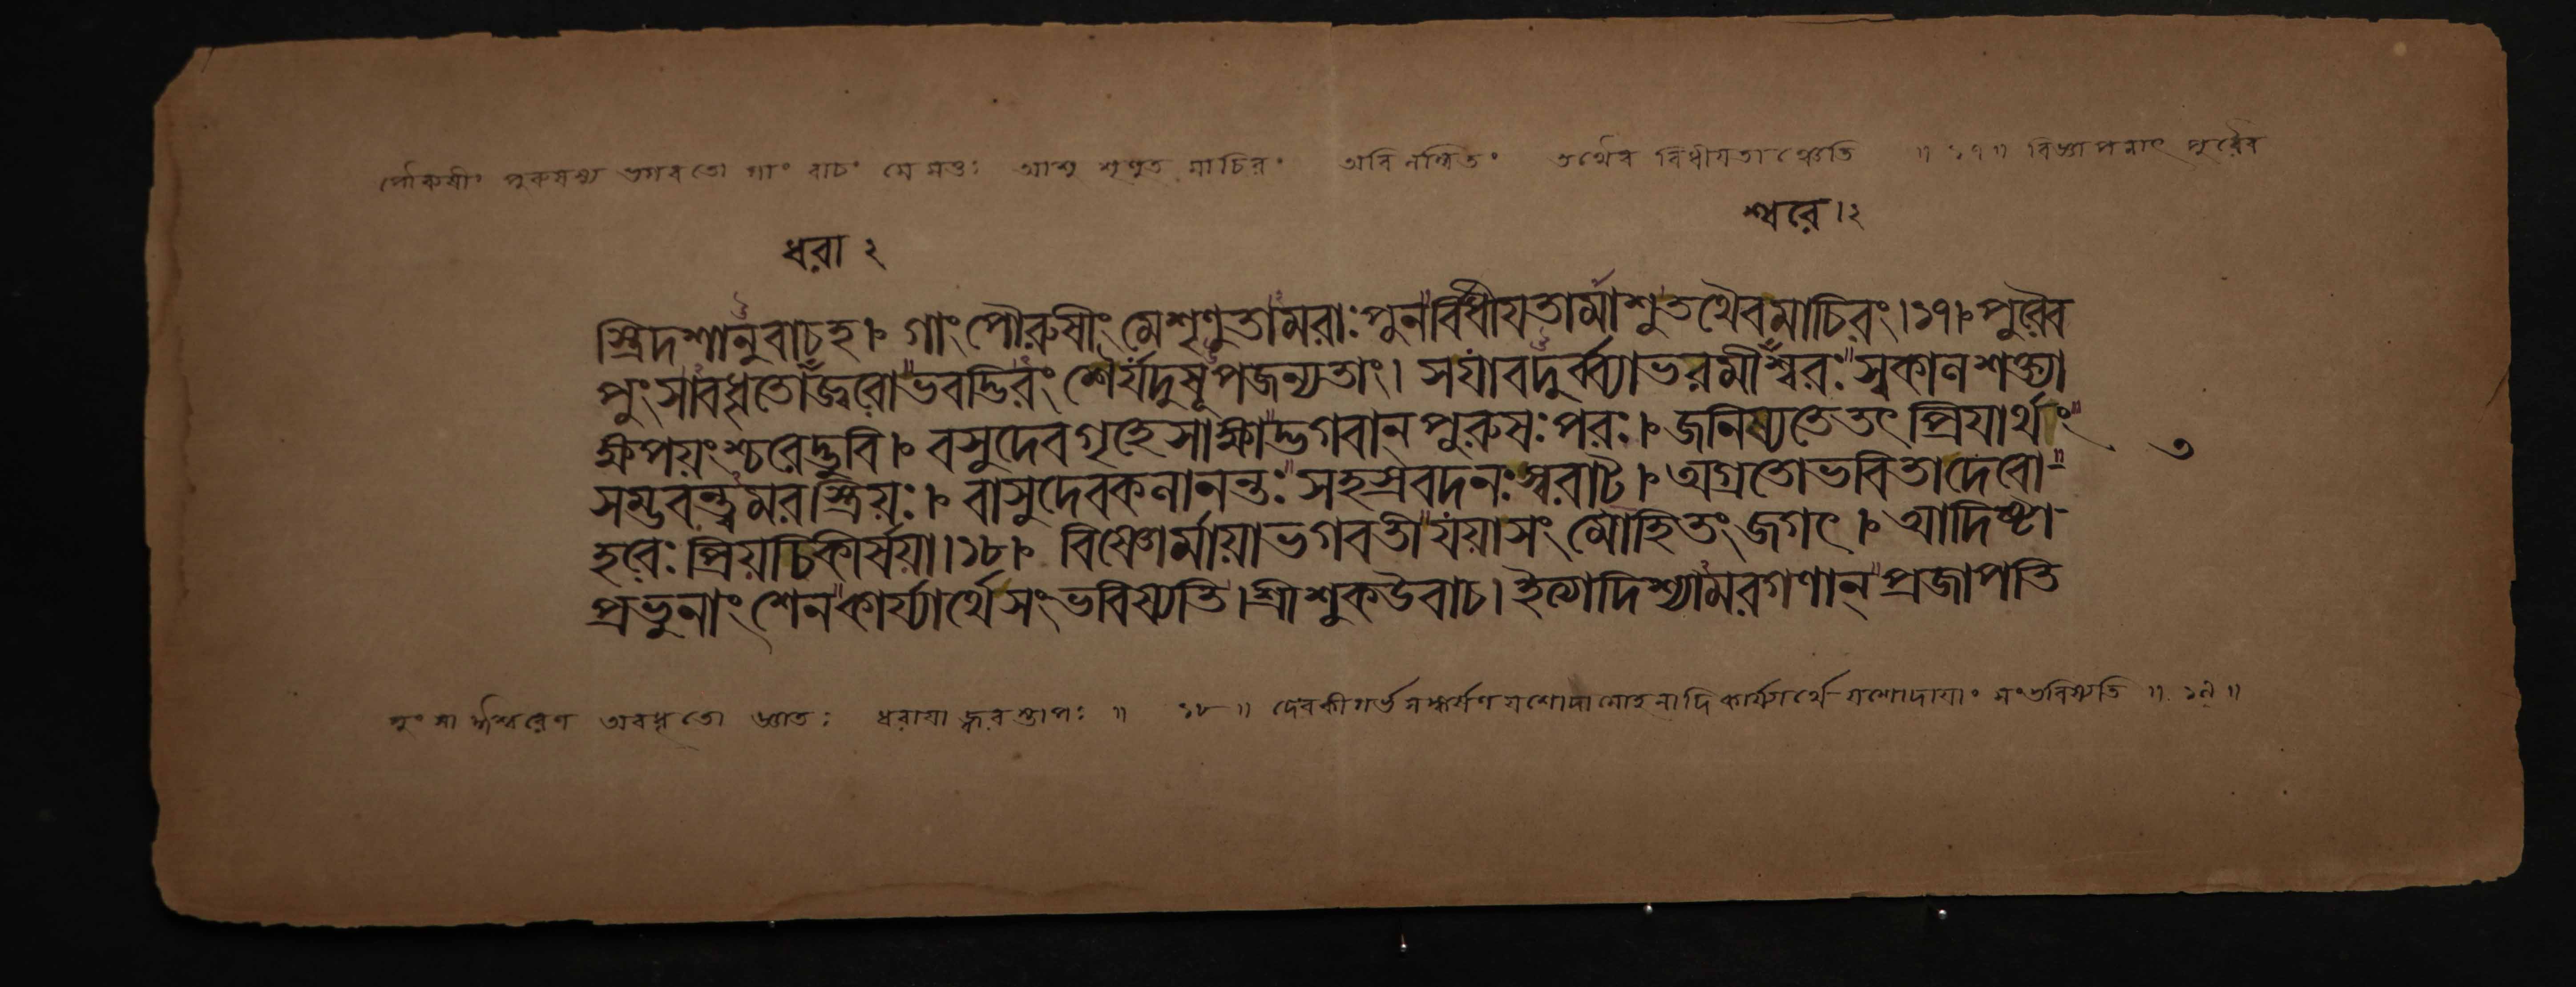 পৌরুষীং পুরুষস্য ভগবতো গাং বাচং মে মত্তঃ আশু শৃণুত মাচিরং অবিলম্বিতং তথৈব বিধীয়তাঞ্চেতি ॥ ১৭ ॥ বিজ্ঞাপনাৎ পুরৈব
শ্বরে।২
ধরা ২
স্ত্রিদশানুবাচহ।৮ গাংপৌরুষীং মেশৃণুতামরাঃ পুনর্বিধীয়তামাশুতথৈবমাচিরং।১৭।৮ পুরৈব
পুংসাবধৃতোজ্বরোভবদ্ভিরংশৈর্যদুষূপজন্যতাং। সযাবদুর্ব্ব্যাভরমীশ্বরঃ স্বকালশক্ত্যা
ক্ষপয়ংশ্চরেদ্ভুবি।৮ বসুদেবগৃহেসাক্ষাদ্ভগবান পুরুষঃ পরঃ।৮ জনিষ্যতেতৎ প্রিয়ার্থং
৩
সম্ভবন্ত্বমরস্ত্রিয়ঃ।৮ বাসুদেবকলানন্তঃ সহস্রবদনঃ স্বরাট্।৮ অগ্রতোভবিতাদেবো
হরেঃ প্রিয়চিকীর্ষয়া।১৮।৮ বিষ্ণোর্মায়াভগবতী যয়াসংমোহিতং জগৎ।৮ আদিষ্টা
প্রভুনাংশেনকার্য্যার্থেসংভবিষ্যতি। শ্রীশুকউবাচ। ইত্যাদিশ্যামরগণান্ প্রজাপতি
পুংসা ঈশ্বরেণ অবধৃতো জ্ঞাতঃ ধরায়া জ্বরস্তাপঃ ॥ ১৮ ॥ দেবকীগর্ভসঙ্কর্ষণযশোদামোহনাদিকার্য্যার্থে যশোদায়াং সংভবিষ্যতি ॥ ১৯ ॥